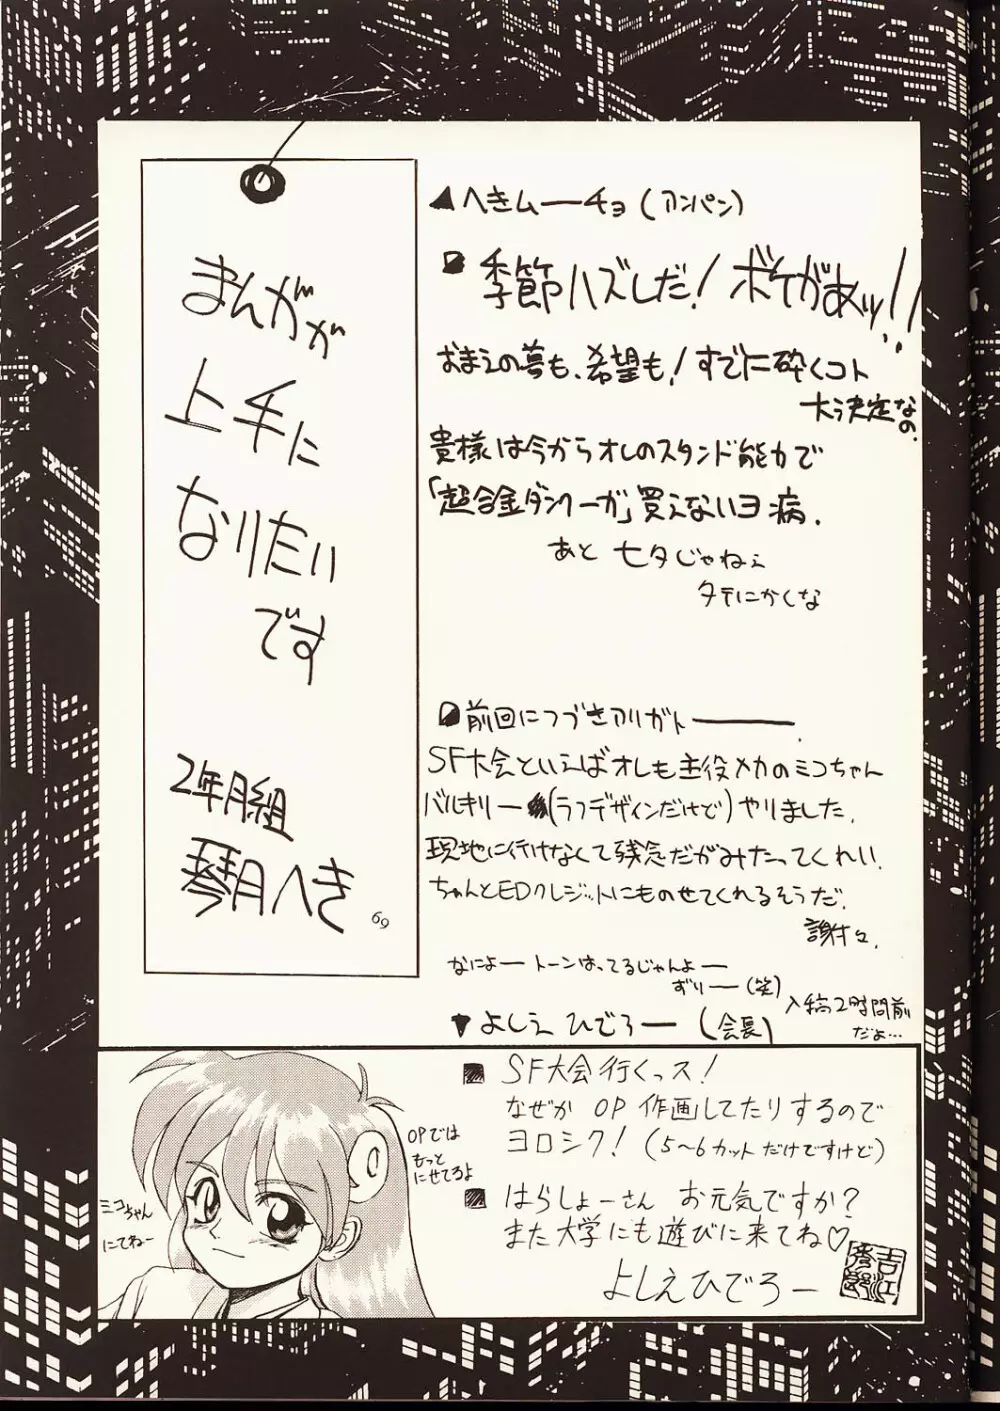 まんがが
上手に
なりたい
です
2年月組
琴月へき
69
▲へきムーチョ(アンパン)
季節ハズレだ!ボケがあッ!!
おまえの夢も、希望も!すでに砕くコト
大決定なの、
貴様は今からオレのスタンド能力で
「超合金ダンクーガ」買えないヨ病.
あと 七夕じゃねぇ
タテにかくな
前回につづきアリガトー
SF大会といえばオレも主役メカのミコちゃん
バルキリー(ラフデザインだけど)やりました.
現地に行けなくて残念だがみたってくれい.
ちゃんとEDクレジットにものせてくれるそうだ.
謝々.
なによートーンはってるじゃんよー
ずりー(笑)
▼よしえ ひでろー(会長)
入稿2時間前
だよ…
ミコちゃん
にてねー
OPでは
もっと
にせてろよ
■ SF大会行くっス!
なぜか OP 作画してたりするので
ヨロシク!(5〜6カットだけですけど)
■ はらしょーさん お元気ですか?
また大学にも遊びに来てね♡
よしえひでろー
吉江
秀郎